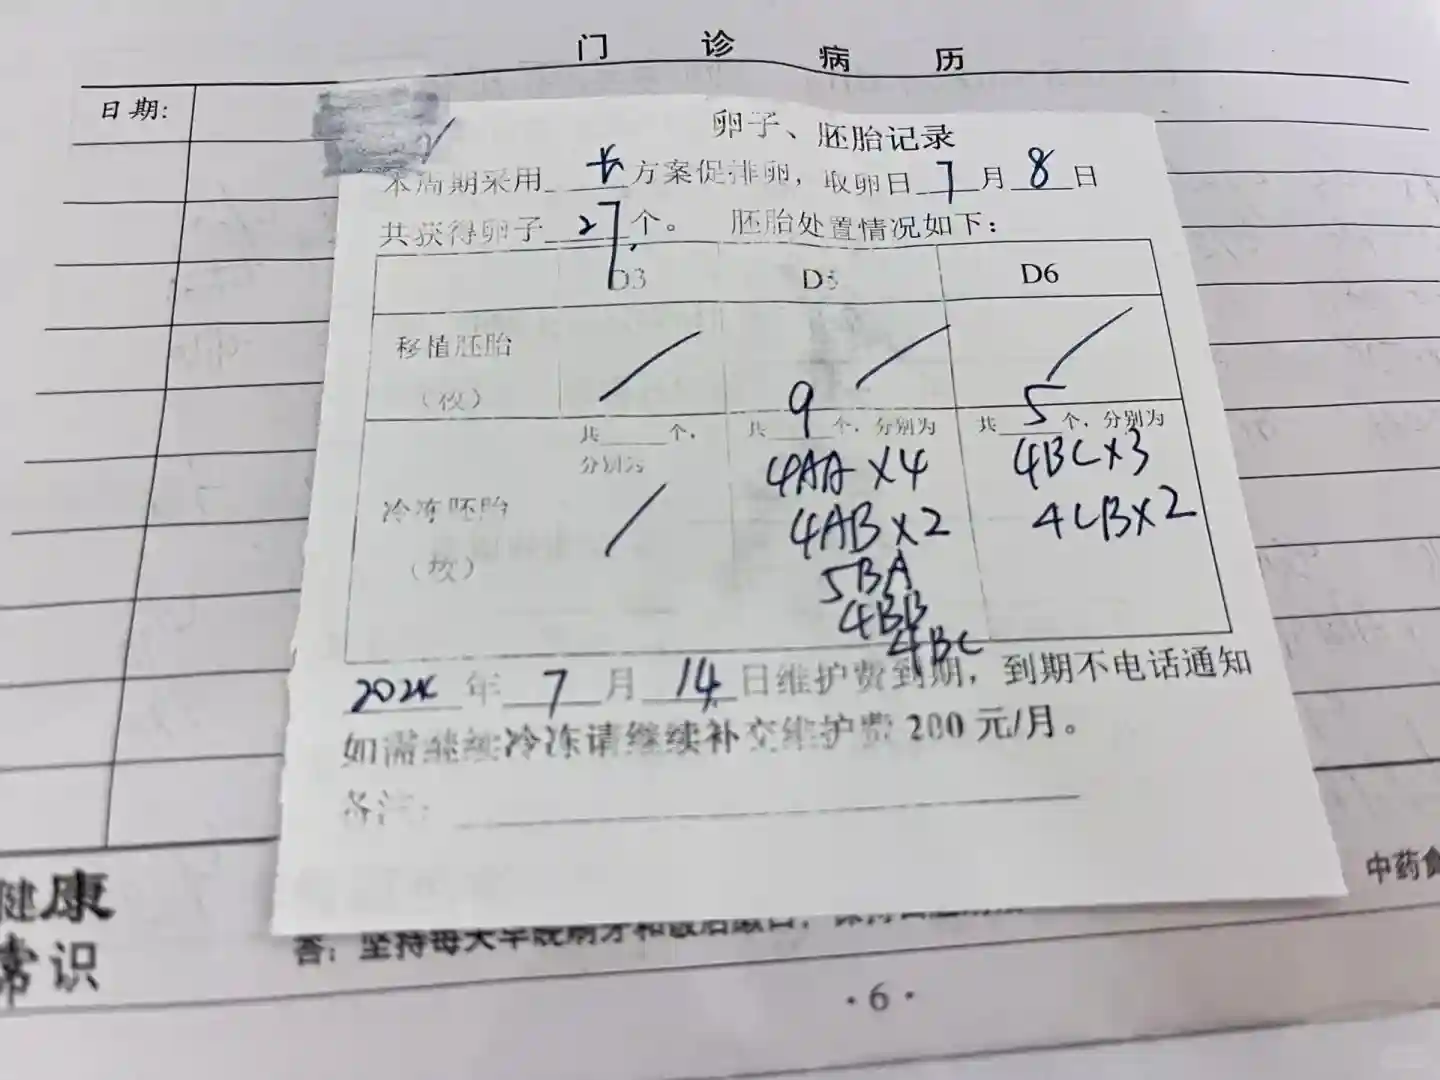 门 诊 病 历
日期:
卵子、胚胎记录
本周期采用 长 方案促排卵, 取卵日 7 月 8 日
共获得卵子 27 个。 胚胎处置情况如下:
D3 D5 D6
移植胚胎
(枚)
9 5
共 个, 共 个, 分别为 共 个, 分别为
分别为 4AA×4 4BC×3
冷冻胚胎 4AB×2 4CB×2
(枚) 5BA
4BB
4BC
2024 年 7 月 14 日维护费到期, 到期不电话通知
如需继续冷冻请继续补交维护费 200 元/月。
备注:
健康 中药食
常识
答: 坚持每天早晚刷牙和饭后漱口,
·6·